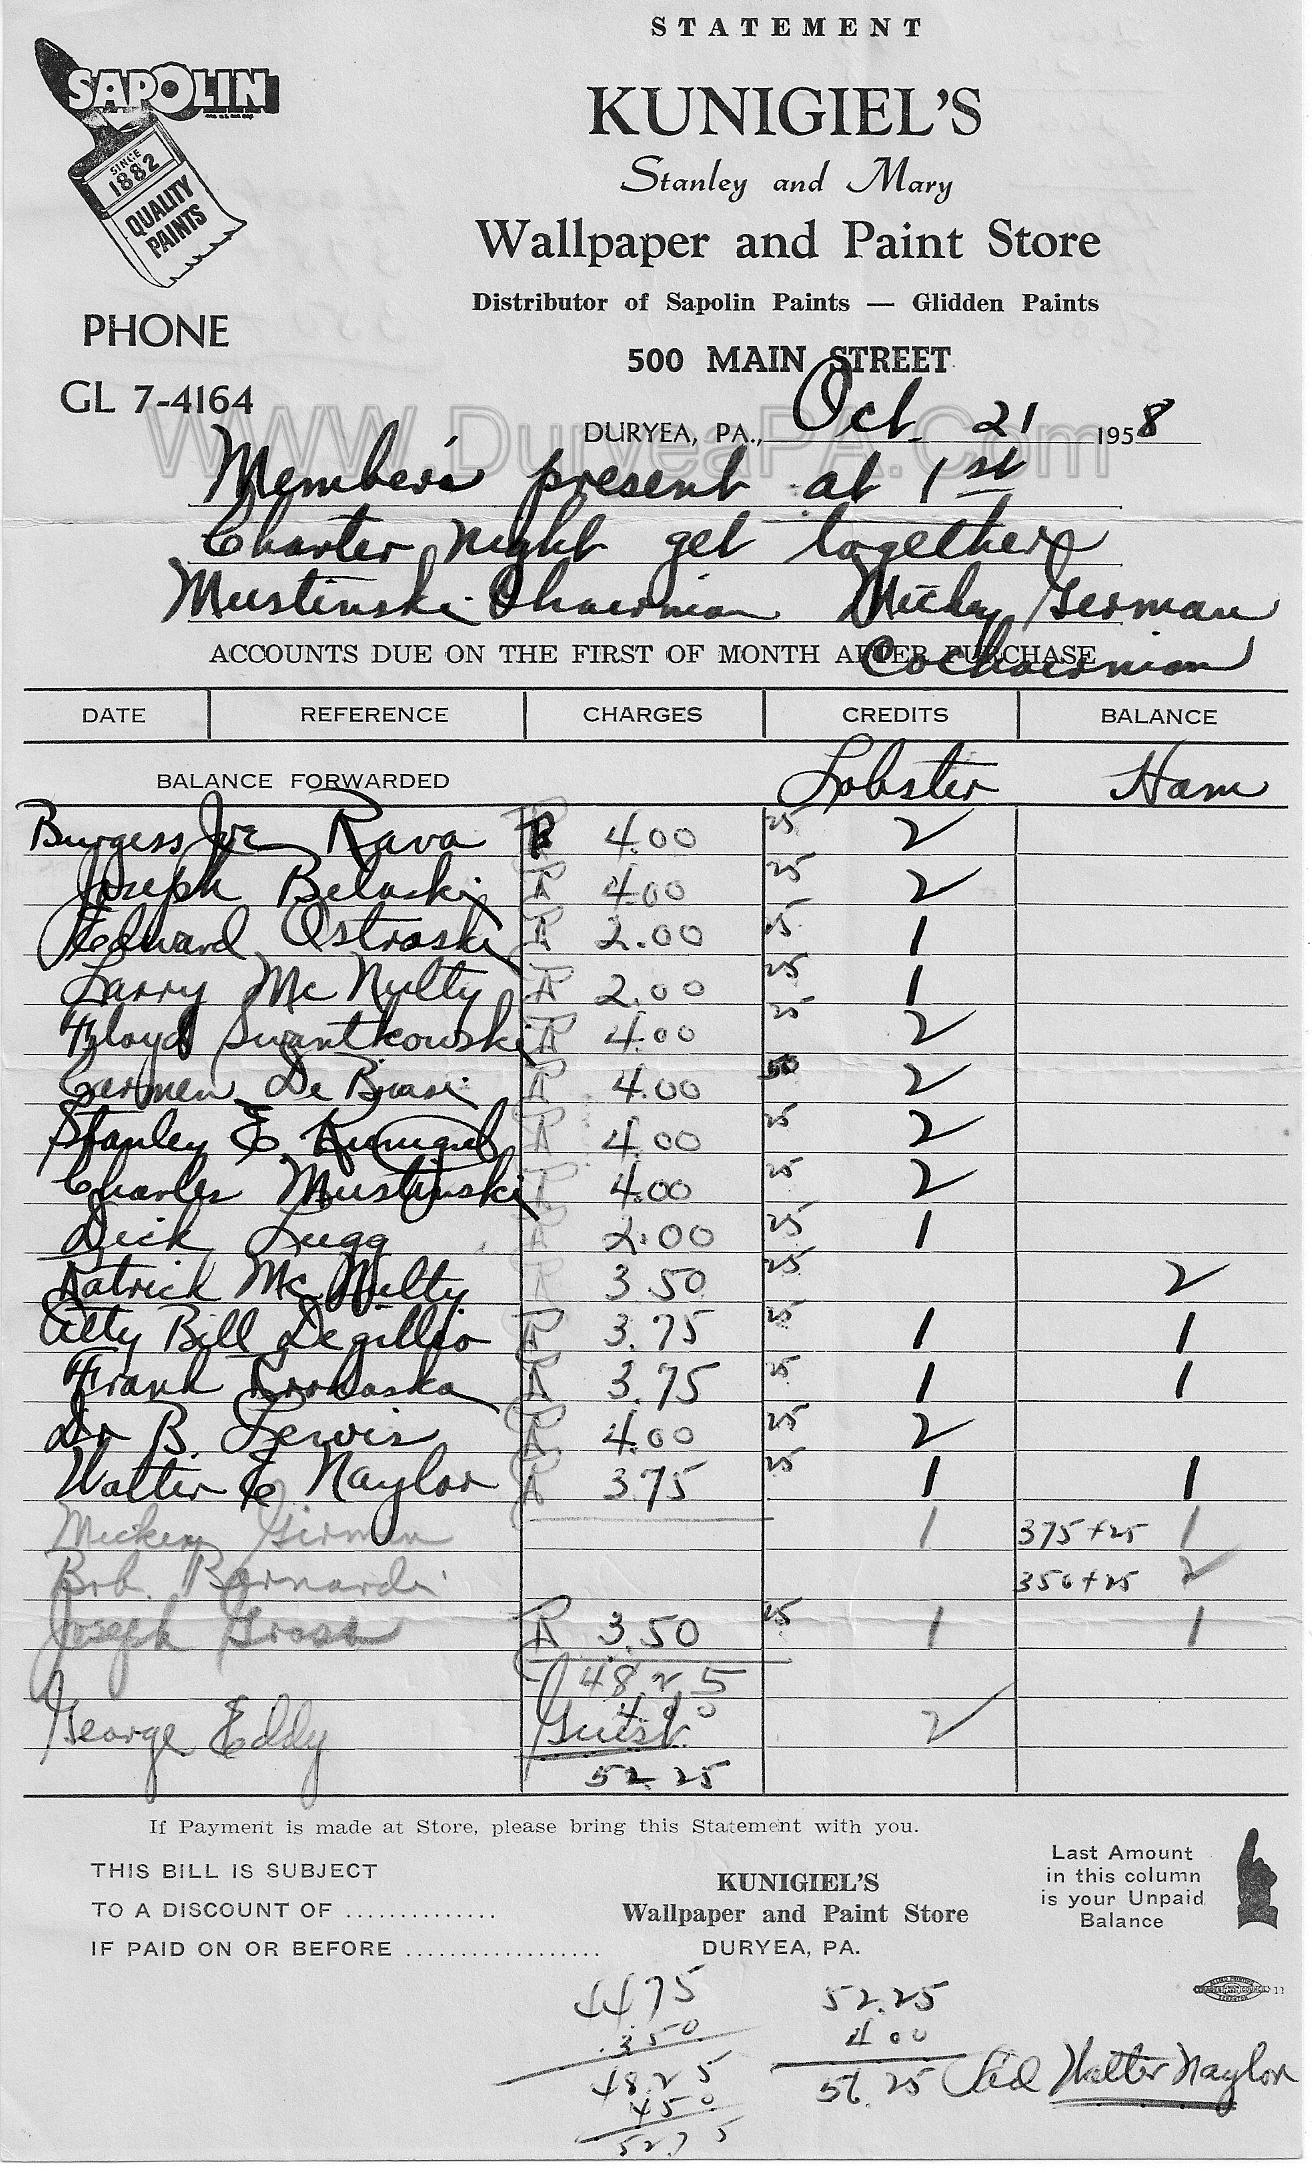 STATEMENT
SAPOLIN
SINCE
1882
QUALITY
PAINTS
KUNIGIEL'S
Stanley and Mary
Wallpaper and Paint Store
Distributor of Sapolin Paints — Glidden Paints
PHONE
GL 7-4164
500 MAIN STREET
DURYEA, PA., Oct. 21 1958
WWW.DuryeaPA.Com
Members present at 1st
Charter night get together
Mustinski Chairman Micky German
Cochairman
ACCOUNTS DUE ON THE FIRST OF MONTH AFTER PURCHASE
DATE REFERENCE CHARGES CREDITS BALANCE
BALANCE FORWARDED Lobster Ham
Burgess Joe Rava 4.00 25 2
Joseph Belaski 4.00 25 2
Edward Ostroski 2.00 25 1
Larry Mc Nulty 2.00 25 1
Floyd Swantkowski 4.00 25 2
Carmen De Biasi 4.00 50 2
Stanley E. Kunigiel 4.00 25 2
Charles Mustinski 4.00 25 2
Dick Lugg 2.00 25 1
Patrick Mc Nulty 3.50 25 2
Atty Bill Degillio 3.75 25 1 1
Frank 3.75 25 1 1
Dr B. Lewis 4.00 25 2
Walter E Naylor 3.75 25 1 1
Mickey German 1 375+25 1
Bob. Bernardi 2 350+25
Joseph R 3.50 25 1 1
48.25
4.00
George Eddy Guest 2
52.25
If Payment is made at Store, please bring this Statement with you.
THIS BILL IS SUBJECT
TO A DISCOUNT OF ..............
IF PAID ON OR BEFORE ..................
KUNIGIEL'S
Wallpaper and Paint Store
DURYEA, PA.
Last Amount
in this column
is your Unpaid
Balance
4475
350
48.25
450
52.75
52.25
4 00
56.25 Walter Naylor